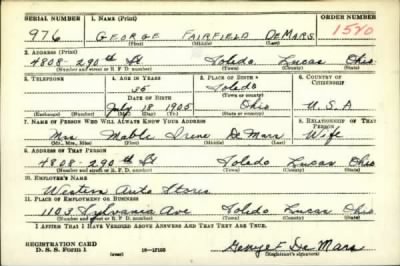 SERIAL NUMBER 1. NAME (Print) ORDER NUMBER
976 GEORGE FAIRFIELD DEMARS 1580
(First) (Middle) (Last)
2. ADDRESS (Print)
4808-290th St Toledo Lucas Ohio
(Number and street or R. F. D. number) (Town) (County) (State)
3. TELEPHONE 4. AGE IN YEARS 5. PLACE OF BIRTH 6. COUNTRY OF CITIZENSHIP
35 Toledo
DATE OF BIRTH (Town or county)
July 18 1905 Ohio U.S.A
(Exchange) (Number) (Mo.) (Day) (Yr.) (State or country)
7. NAME OF PERSON WHO WILL ALWAYS KNOW YOUR ADDRESS 8. RELATIONSHIP OF THAT PERSON
Mrs Mable Irene De Mars Wife
(Mr., Mrs., Miss) (First) (Middle) (Last)
9. ADDRESS OF THAT PERSON
4808-290th St Toledo Lucas Ohio
(Number and street or R. F. D. number) (Town) (County) (State)
10. EMPLOYER'S NAME
Western Auto Stores
11. PLACE OF EMPLOYMENT OR BUSINESS
1103 Sylvania Ave Toledo Lucas Ohio
(Number and street or R. F. D. number) (Town) (County) (State)
I AFFIRM THAT I HAVE VERIFIED ABOVE ANSWERS AND THAT THEY ARE TRUE.
REGISTRATION CARD
D. S. S. Form 1 George F. De Mars
(over) (Registrant's signature)